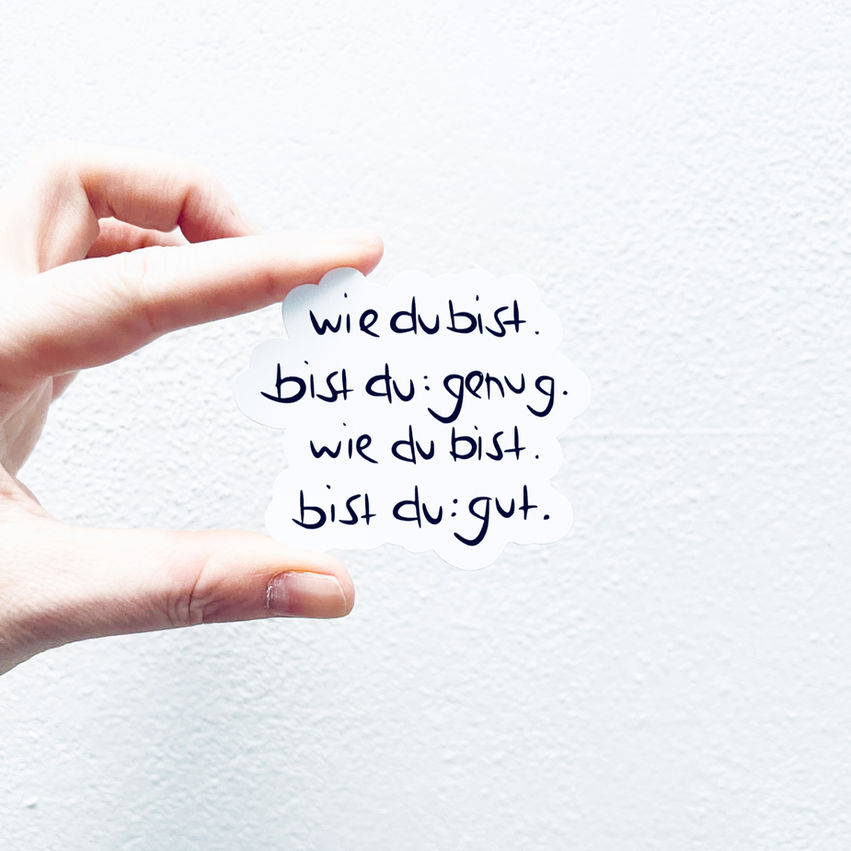 wie du bist.
bist du: genug.
wie du bist.
bist du: gut.